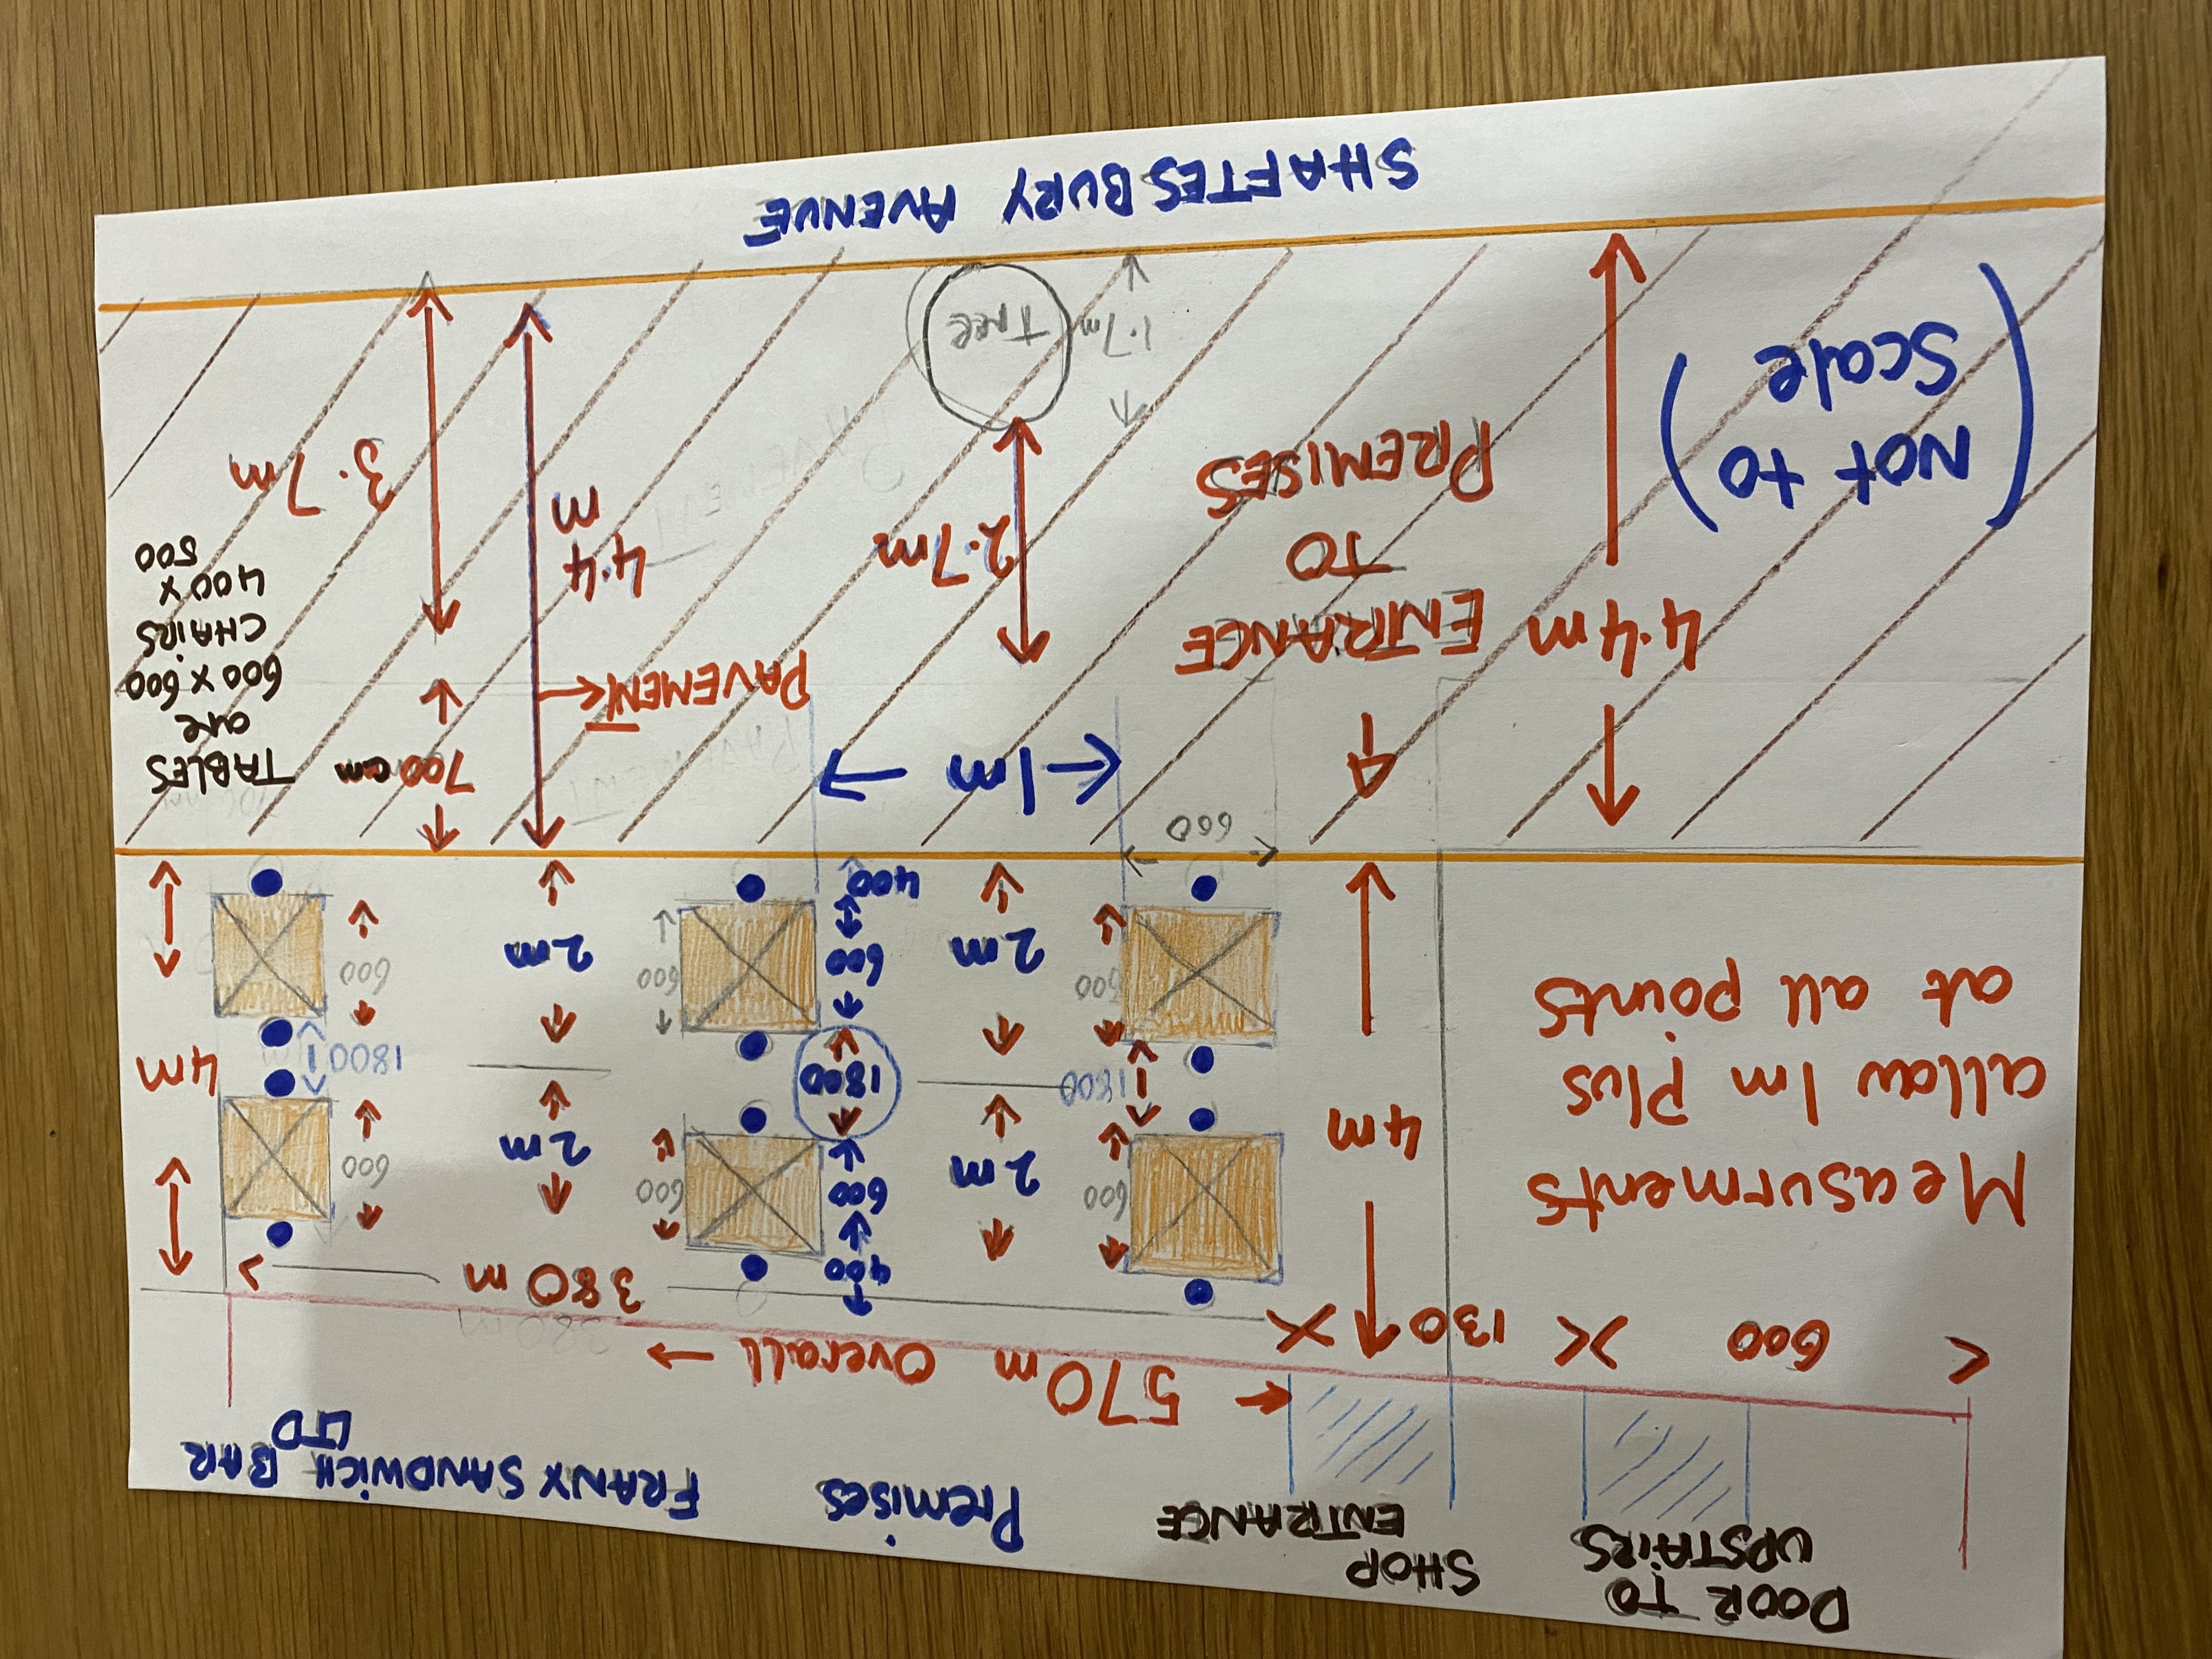 DOOR TO
UPSTAIRS
SHOP
ENTRANCE
Premises
FRANX SANDWICH BAR
LTD
570m Overall
600
130
380 m
Measurments
allow 1m Plus
at all points
4m
600
1800
600
600
2m
2m
400
600
1800
600
400
600
600
2m
2m
600
1800
600
4m
4.4m
ENTRANCE
TO
PREMISES
1m
PAVEMENT
4.4
m
700 cm
3.7m
2.7m
TABLES
are
600 x 600
CHAIRS
400 x
500
(NOT to
Scale)
1.7m
Tree
SHAFTESBURY AVENUE